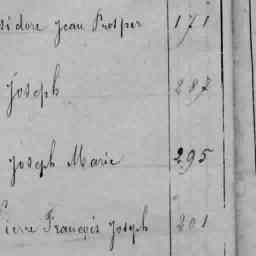 sidore Jean Prosper 171
Joseph 287
Joseph Marie 295
Pierre François Joseph 201